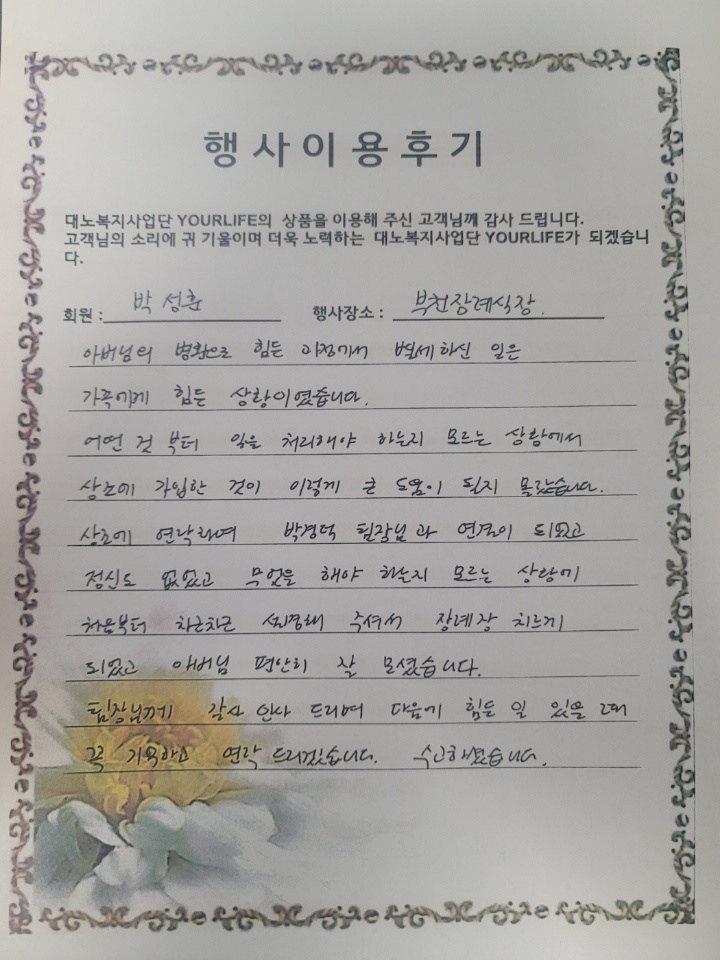 행사이용후기
대노복지사업단 YOURLIFE의 상품을 이용해 주신 고객님께 감사 드립니다.
고객님의 소리에 귀 기울이며 더욱 노력하는 대노복지사업단 YOURLIFE가 되겠습니
다.
회원 : 박성훈 행사장소 : 부천장례식장.
아버님의 병환으로 힘든 과정에서 별세하신 일은
가족에게 힘든 상황이였습니다.
어떤 것 부터 일을 처리해야 하는지 모르는 상황에서
상조에 가입한 것이 이렇게 큰 도움이 될지 몰랐습니다.
상조에 연락하여 박경덕 팀장님과 연결이 되었고
정신도 없었고 무엇을 해야 하는지 모르는 상황에
처음부터 차근차근 설명해 주셔서 장례장 치르게
되었고 아버님 편안히 잘 모셨습니다.
팀장님께 감사 인사 드리며 다음에 힘든 일 있을 때
꼭 기억하고 연락 드리겠습니다. 수고하셨습니다.